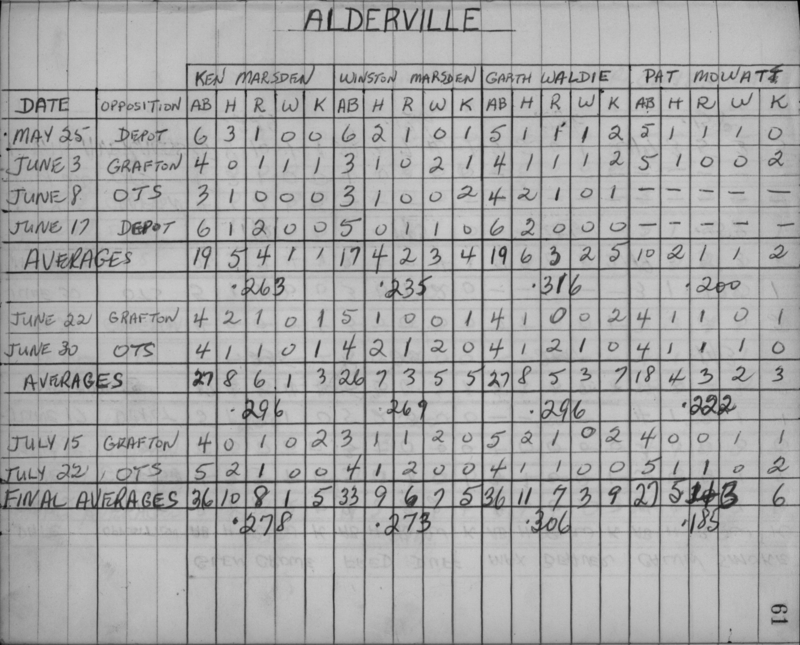 ALDERVILLE
KEN MARSDEN WINSTON MARSDEN GARTH WALDIE PAT MOWATT
DATE OPPOSITION AB H R W K AB H R W K AB H R W K AB H R W K
MAY 25 DEPOT 6 3 1 0 0 6 2 1 0 1 5 1 1 1 2 5 1 1 1 0
JUNE 3 GRAFTON 4 0 1 1 1 3 1 0 2 1 4 1 1 1 2 5 1 0 0 2
JUNE 8 OTS 3 1 0 0 0 3 1 0 0 2 4 2 1 0 1 — — — — —
JUNE 17 DEPOT 6 1 2 0 0 5 0 1 1 0 6 2 0 0 0 — — — — —
AVERAGES 19 5 4 1 1 17 4 2 3 4 19 6 3 2 5 10 2 1 1 2
.263 .235 .316 .200
JUNE 22 GRAFTON 4 2 1 0 1 5 1 0 0 1 4 1 0 0 2 4 1 1 0 1
JUNE 30 OTS 4 1 1 0 1 4 2 1 2 0 4 1 2 1 0 4 1 1 1 0
AVERAGES 27 8 6 1 3 26 7 3 5 5 27 8 5 3 7 18 4 3 2 3
.296 .269 .296 .222
JULY 15 GRAFTON 4 0 1 0 2 3 1 1 2 0 5 2 1 0 2 4 0 0 1 1
JULY 22 OTS 5 2 1 0 0 4 1 2 0 0 4 1 1 0 0 5 1 1 0 2
FINAL AVERAGES 36 10 8 1 5 33 9 6 7 5 36 11 7 3 9 27 5 4 3 6
.278 .273 .306 .185
61